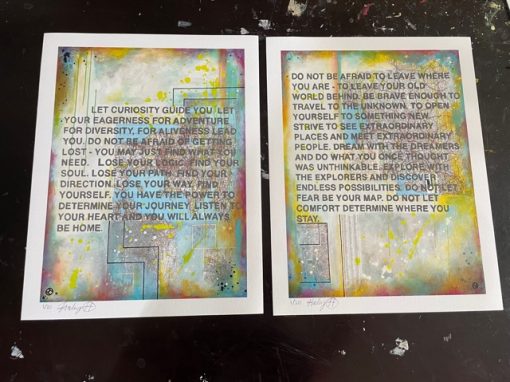 LET CURIOSITY GUIDE YOU. LET
YOUR EAGERNESS FOR ADVENTURE
FOR DIVERSITY, FOR ALIVENESS LEAD
YOU. DO NOT BE AFRAID OF GETTING
LOST - YOU MAY JUST FIND WHAT YOU
NEED. LOSE YOUR LOGIC. FIND YOUR
SOUL. LOSE YOUR PATH. FIND YOUR
DIRECTION. LOSE YOUR WAY. FIND
YOURSELF. YOU HAVE THE POWER TO
DETERMINE YOUR JOURNEY. LISTEN TO
YOUR HEART AND YOU WILL ALWAYS
BE HOME.
1/20
DO NOT BE AFRAID TO LEAVE WHERE
YOU ARE - TO LEAVE YOUR OLD
WORLD BEHIND. BE BRAVE ENOUGH TO
TRAVEL TO THE UNKNOWN. TO OPEN
YOURSELF TO SOMETHING NEW.
STRIVE TO SEE EXTRAORDINARY
PLACES AND MEET EXTRAORDINARY
PEOPLE. DREAM WITH THE DREAMERS
AND DO WHAT YOU ONCE THOUGHT
WAS UNTHINKABLE. EXPLORE WITH
THE EXPLORERS AND DISCOVER
ENDLESS POSSIBILITIES. DO NOT LET
FEAR BE YOUR MAP. DO NOT LET
COMFORT DETERMINE WHERE YOU
STAY.
1/20